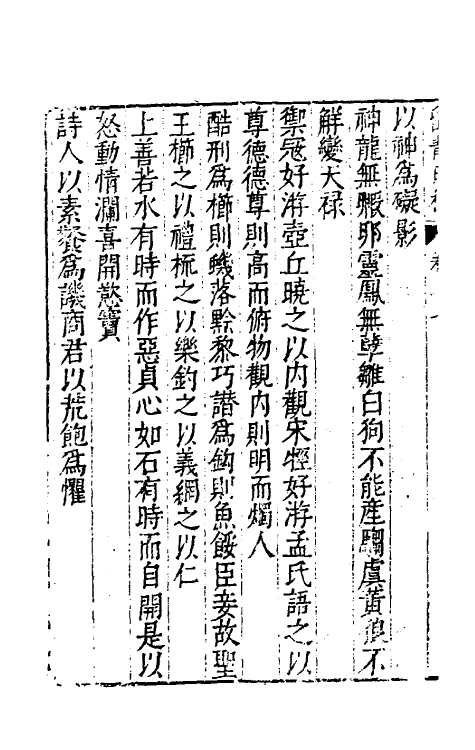 以神為礙影
神龍無醜邪靈鳳無孽雛白狗不能產騶虞黃狼不
觧變天祿
禦冦好游壺丘曉之以内觀宋牼好游孟氏語之以
尊德德尊則高而俯物觀内則明而燭人
酷刑為櫛則蟣落黔黎巧譖為鈎則魚餒臣妾故聖
王櫛之以禮梳之以樂釣之以義網之以仁
上善若水有時而作惡貞心如石有時而自開是以
怒動情瀾喜開慾竇
詩人以素餐為譏商君以荒飽為懼